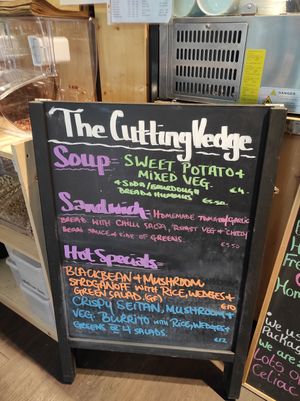 The Cutting Vedge
Soup = SWEET POTATO +
MIXED VEG. €4.
+ SODA/SOURDOUGH
BREAD + HUMMUS €5.50
Sandwich = HOMEMADE TOMATO/GARLIC
BREAD WITH CHILLI SALSA, ROAST VEG +
BEAN SAUCE + SIDE OF GREENS. €5.50
Hot Specials =
BLACKBEAN + MUSHROOM
STROGANOFF WITH RICE, WEDGES +
GREEN SALAD. (GF) €10
CRISPY SEITAN, MUSHROOM +
VEG. BURRITO WITH RICE, WEDGES +
GREENS OR 4 SALADS. €12
DANGER
We are
Celiac